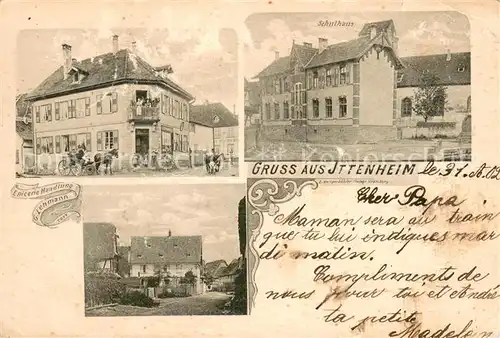 Schulhaus
GRUSS AUS ITTENHEIM le 31. A. 02
Epicerie Handlung
Lehmann
Cher Papa
Maman sera au train
que tu lui indiques mar
di matin.
Compliments de
nous pour toi et
ta petite
Madelen